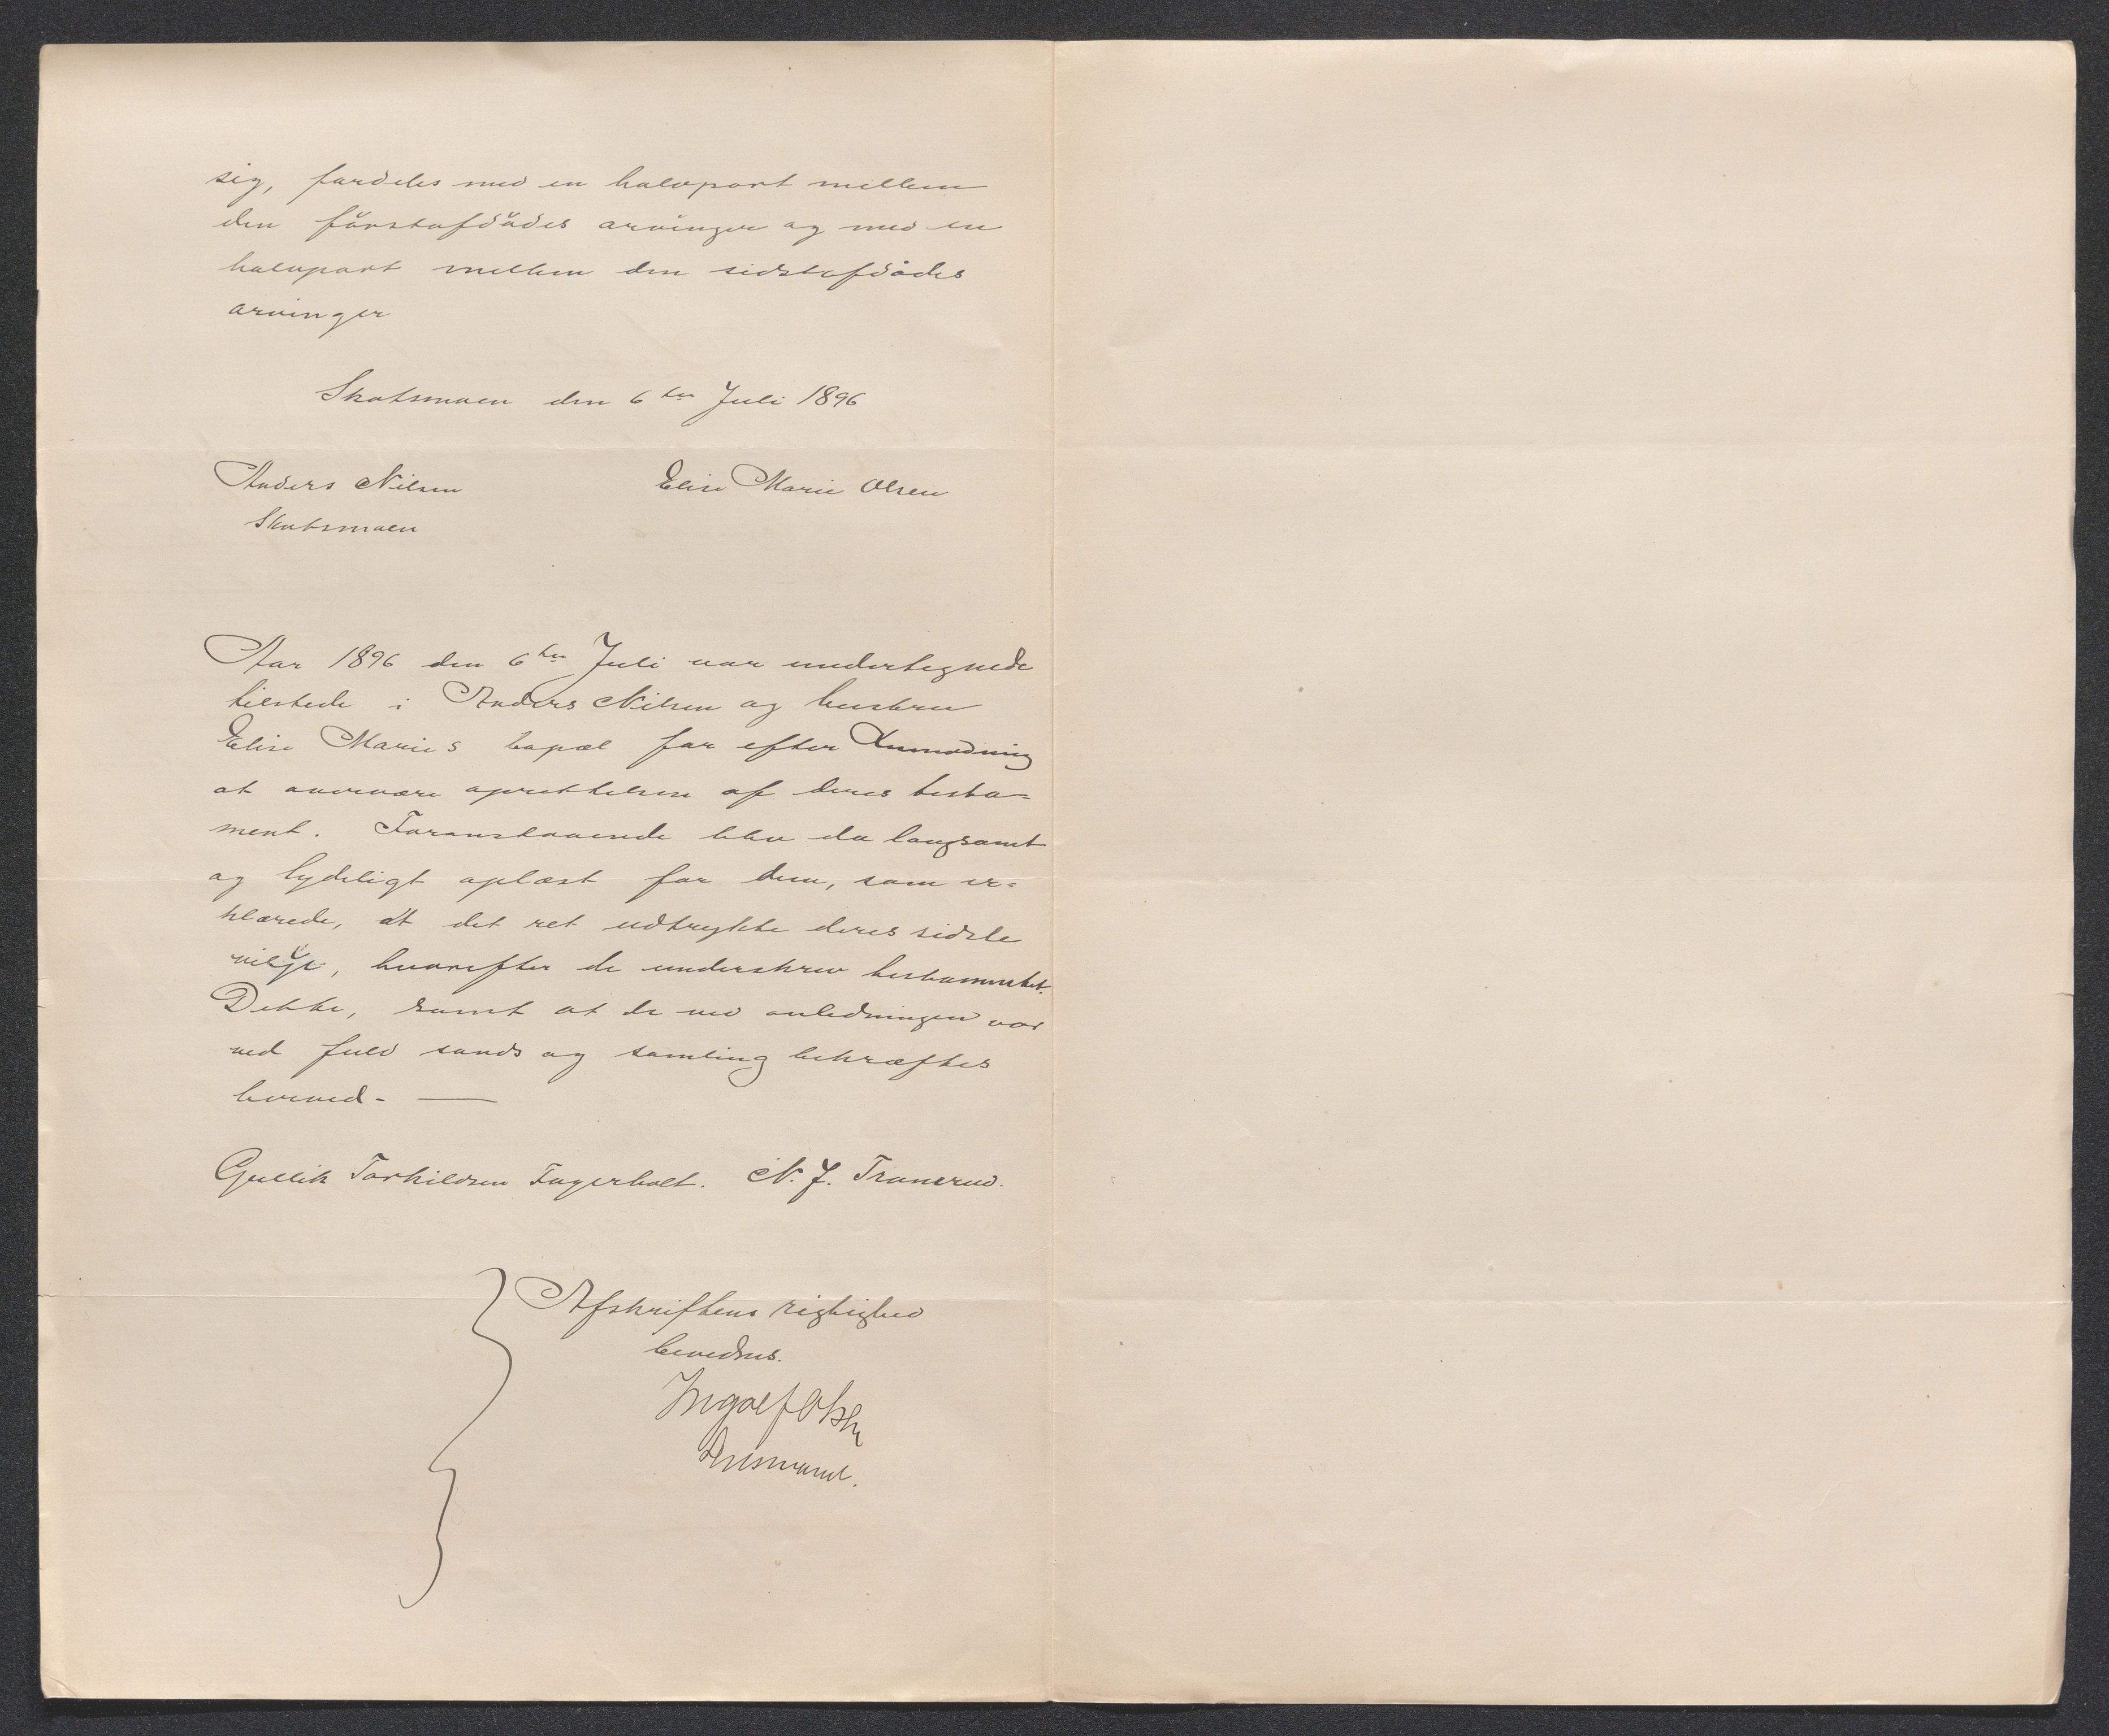 sig, fordeles med en halvpart mellem
den förstafdödes arvinger og med en
halvpart mellem den sidstafdödes
arvinger
Skotsmoen den 6te Juli 1896
Anders Nilsen Elise Marie Olsen
Skotsmoen
Aar 1896 den 6te Juli var undertegnede
tilstede i Anders Nilsen og hustru
Elise Maries bopæl for efter Anmodning
at overvære oprettelsen af deres testa=
ment. Foranstaaende blev da langsomt
og tydeligt oplæst for dem, som er=
klærede, at det ret udtrykte deres sidste
vilje, hvorefter de underskrev testamentet.
Dette, samt at de ved anledningen var
ved fuld sands og samling bekræftes
herved. —
Gullik Torkildsen Fagerholt. N. J. Tranerud.
Afskriftens rigtighed
bevidnes.
Ingolf